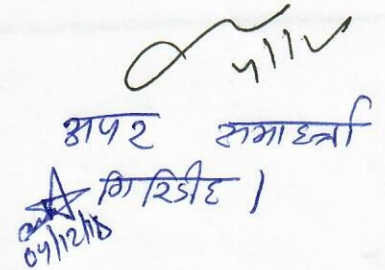 अपर समाहर्त्ता
गिरिडीह।
04/12/18